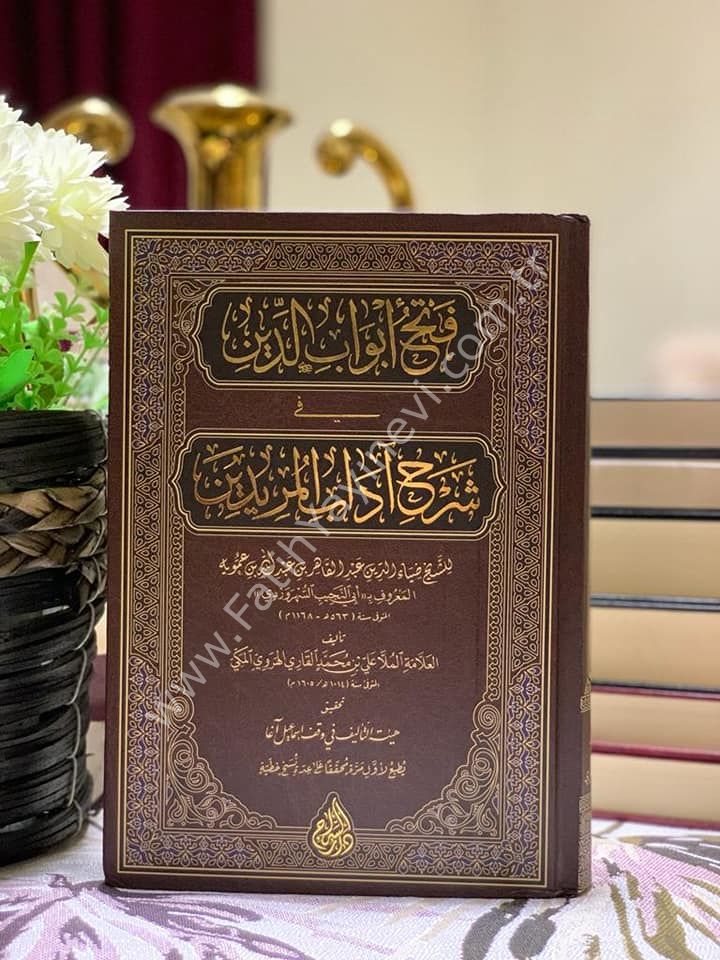 فَتْحُ أَبْوَابِ الدِّينِ
في
شَرْحِ آدَابِ المُرِيدِينَ
للشيخ ضياء الدين عبد القاهر بن عبد الله بن عمويه
المعروف بـ «أبي النجيب السهروردي»
المتوفى سنة (٥٦٣ هـ - ١١٦٨ م)
تأليف
العلامة الملا علي بن محمد القاري الهروي المكي
المتوفى سنة (١٠١٤ هـ / ١٦٠٥ م)
تحقيق
هيئة التأليف في وقف إسماعيل آغا
يطبع لأول مرة محققا على عدة نسخ خطية
دار السراج
www.FatihYayinevi.com.tr